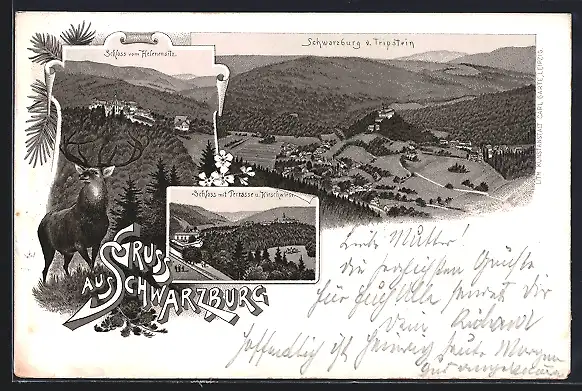 Schloss vom Helenensitz.
Schwarzburg v. Tripstein
Schloss mit Terrasse u. Hirschwiese.
GRUSS
AUS SCHWARZBURG
LITH. KUNSTANSTALT CARL GARTE, LEIPZIG.
Liebe Mutter!
die herzlichsten Grüße
für Euch Alle sendet dir
dein Richard
hoffentlich ist heute Morgen
gut angekommen